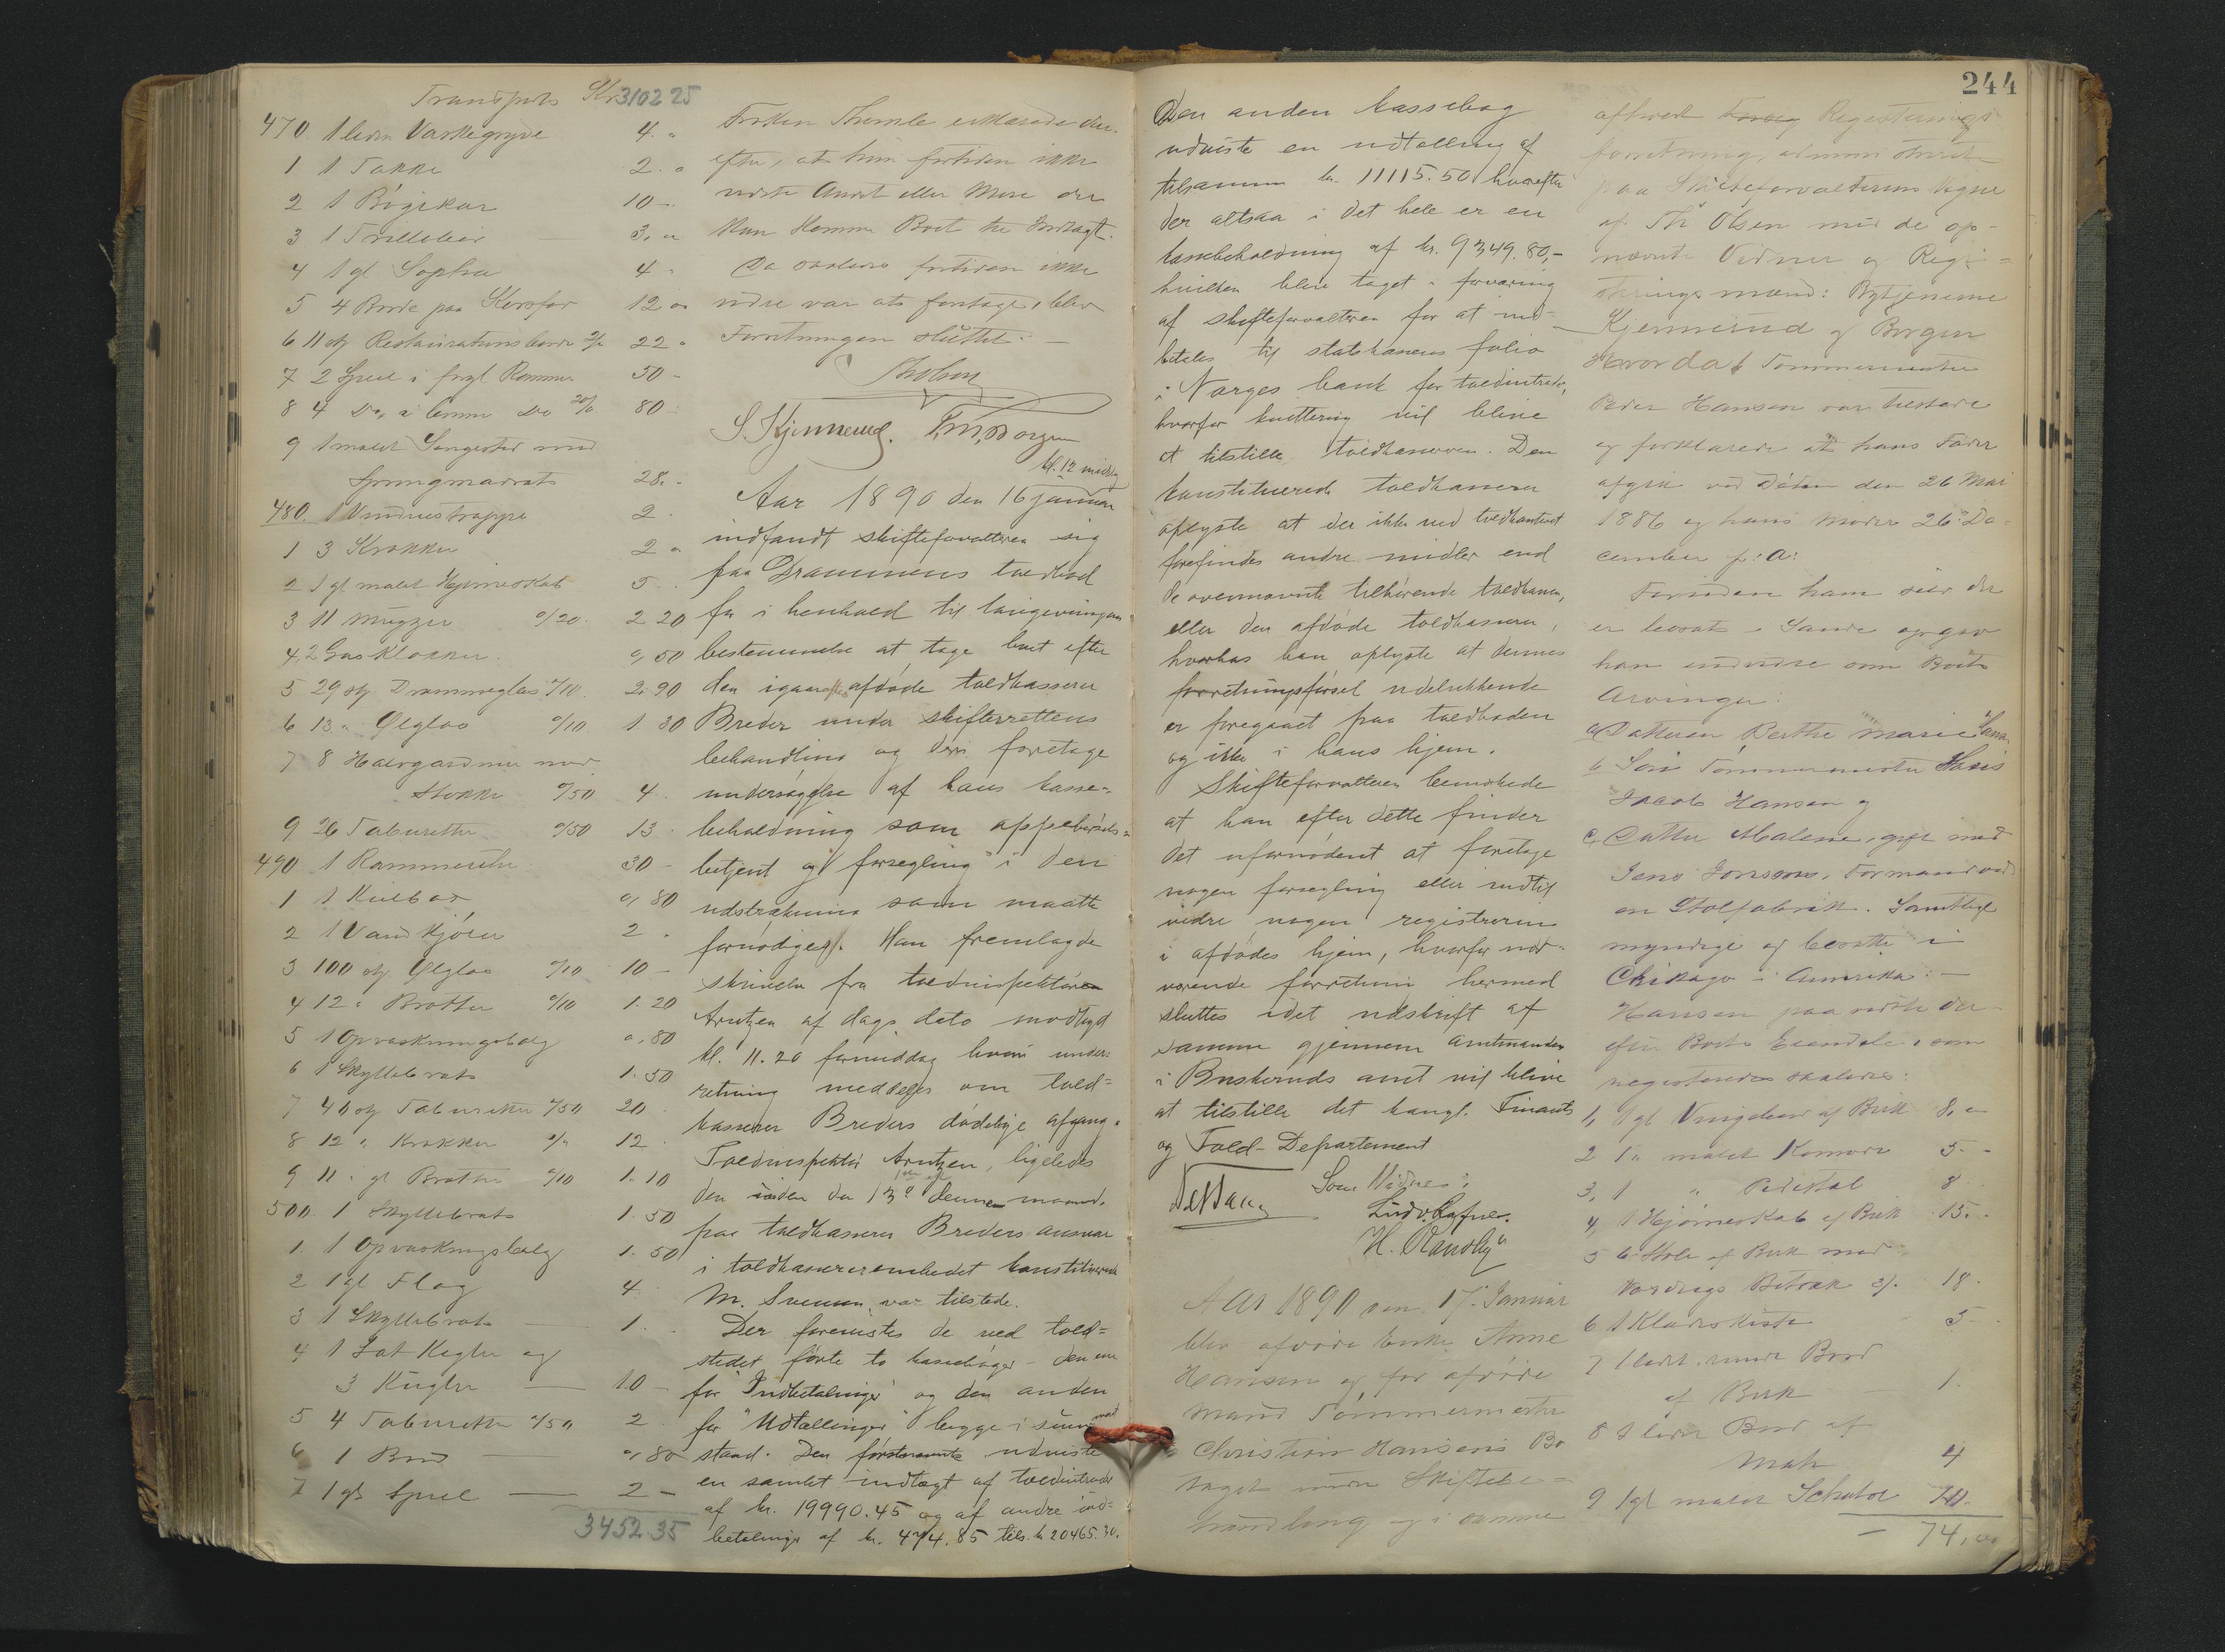 244
Transport Kr 3102 25
470. 1 liden Vaskegryde 4. "
1 1 Takke 2. "
2 1 Bøgekar 10 -
3 1 Trillebør 3. "
4 1 gl Sopha 4 "
5 4 Borde paa Korsfod 12 "
6 11 st Restaurationsborde 2/ 22 "
7 2 Speil i forgl Rammer 50 -
8 4 Do, i brune Do 20/ 80
9 1 malet Sengested med
Springmadrats 28. -
480. 1 Vinduestrappe 2
1 3 Krakker 2 "
2 1 gl malet Hjørneskab 5
3 11 Mugger "/20 2 20
4 2 Gas Klokker 0,50
5 29 st Dramme glas "/10 2. 90
6 13 " Ølglas "/10 1. 30
7 8 Halvgardiner med
Stokke "/50 4.
9 26 Taburetter "/50 13
490 1 Kommode 30 -
1 1 Kulbox 0,80
2 1 Vandkjøler 2
3 100 st Ølglas "/10 10 -
4 12 " Bretter "/10 1. 20
5 1 Opvaskningsbalg 0,80
6 1 Skyllebrats 1. 50
7 40 st Taburetter "/50 20
8 12 " Krakker "/" 12
9 11 " gl Bretter "/10 1. 10
500. 1 Skyllebrats 1. 50
1. 1 Opvaskningsbalg 1. 50
2 1 gl Flag 4
3 1 Skyllebrats 1. -
4 1 Sæt Kegler og
3 Kugler 10 -
5 4 Taburetter "/50 2
6 1 Bord 0,80
7 1 gl Speil 2 -
3452 35
Frøken Thomle erklærede der-
efter, at hun fortiden ikke
vidste Andet eller Mere der
kan komme Boet til Indtægt.
Da saaledes fortiden ikke
videre var at foretage, blev
Forretningen sluttet. -
Th Olsen
S. Kjennerud. T. M. Borgen
kl. 12 middag
Aar 1890 den 16 januar
indfandt skifteforvalteren sig
paa Drammens toldbod
for i henhold til lovgivningens
bestemmelse at tage boet efter
den igaar aftes afdøde toldkasserer
Breder under skifterettens
behandling og deri foretage
undersøgelse af hans kasse-
beholdning som oppebørsels-
betjent og forsegling i den
udstrækning som maatte
fornødiges. Han fremlagde
skrivelse fra toldinspektøren
Arntzen af dags dato modtaget
kl. 11.20 formiddag hvori under-
retning meddeles om told=
kasserer Breders dødelige afgang.
Toldinspektør Arntzen, ligeledes
den siden den 13de denne maaned.
paa toldkasserer Breders ansvar
i toldkassererembedet konstituerede
M. Svensen var tilstede.
Der forevistes de ved told=
stedet førte to kassebøger - den ene
for "Indbetalinger" og den anden
for "Udtællinger" begge i
stand. Den førstnævnte udviste
en samlet indtægt af toldintrader
af kr. 19990.45 og af andre ind=
betalinger af kr. 474.85 tils. kr 20465.30.
Den anden kassebog
udviste en udtælling af
tilsammen kr. 11115.50 hvorefter
der altsaa i det hele er en
kassebeholdning af kr. 9349.80,-
hvilken blev taget i forvaring
af skifteforvalteren for at ind-
betales til statskassens folio
i Norges bank for toldintrader,
hvorfor kvittering vil blive
at tilstille toldkassereren. Den
konstituerede toldkasserer
oplyste at der ikke ved toldkontoret
forefindes andre midler end
de ovennævnte tilhørende toldkassen,
eller den afdøde toldkasserer,
hvorhos han oplyste at dennes
forretningsførsel udelukkende
er foregaaet paa toldboden
og ikke i hans hjem.
Skifteforvalteren bemerkede
at han efter dette finder
det ufornødent at foretage
nogen forsegling eller indtil
videre nogen registrering
i afdødes hjem, hvorfor nær-
værende forretning hermed
sluttes idet udskrift af
samme gjennem amtmanden
i Buskeruds amt vil blive
at tilstille det kongl. Finants
og Told-Departement
Som Vidner:
Ludv. Hafner.
Aar 1890 den 17. Januar
blev afdøde Enke Anne
Hansen og før afdøde
Mand Tømmermester
Christian Hansens Bo
taget under Skiftebe=
handling og i samme
afholdt Registrerings
forretning, administreret
paa Skifteforvalterens Vegne
af Th Olsen med de op-
nævnte Vidner og Regi-
streringsmænd: Bytjenerne
Kjennerud og Borgen
Hvorda Tømmermester
Peder Hansen var tilstede
og forklarede at hans Fader
afgik ved Døden den 26 Mai
1886 og hans Moder 26 De-
cember f: A:
Foruden ham selv der
er bosat i Sande opgav
han endvidere som Boets
Arvinger:
a, Datteren Berthe Marie
b Søn Tømmermester Hans
Jacob Hansen og
c, Datter Malene, gift med
Jens Jonsson, Formand ved
en Stolfabrik. Samtlige
myndige og bosatte i
Chikago i Amerika. -
Hansen paaviste der-
efter Boets Eiendele, som
registreredes saaledes:
1, 1 gl Vingebord af Birk 8, "
2 1 " malet Komode 5. -
3, 1 " Pidestal 8
4, 1 Hjørneskab af Birk 15. -
5 6 Stole af Birk med
Vordugs Betræk 3/. 18.
6 1 Klædeskiste 5 -
7 1 lidet rundt Bord
af Birk 1.
8 1 lidet Bord af
Mah 4
9 1 gl malet Schatol 10.
- 74, 00